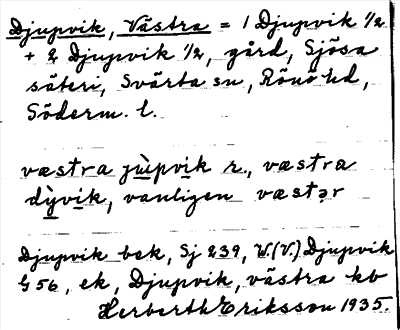 Djupvik, Västra = 1 Djupvik 1/2
+ 2 Djupvik 1/2, gård, Sjösa
säteri, Svärta sn, Rönö hd,
Söderm. l.
væstra jùpvik r., væstra
dỳvik, vanligen væstər
Djupvik bek, Sj 239, W.(V.) Djupvik
G 56, ek, Djupvik, västra kb
Herberth Eriksson 1935.